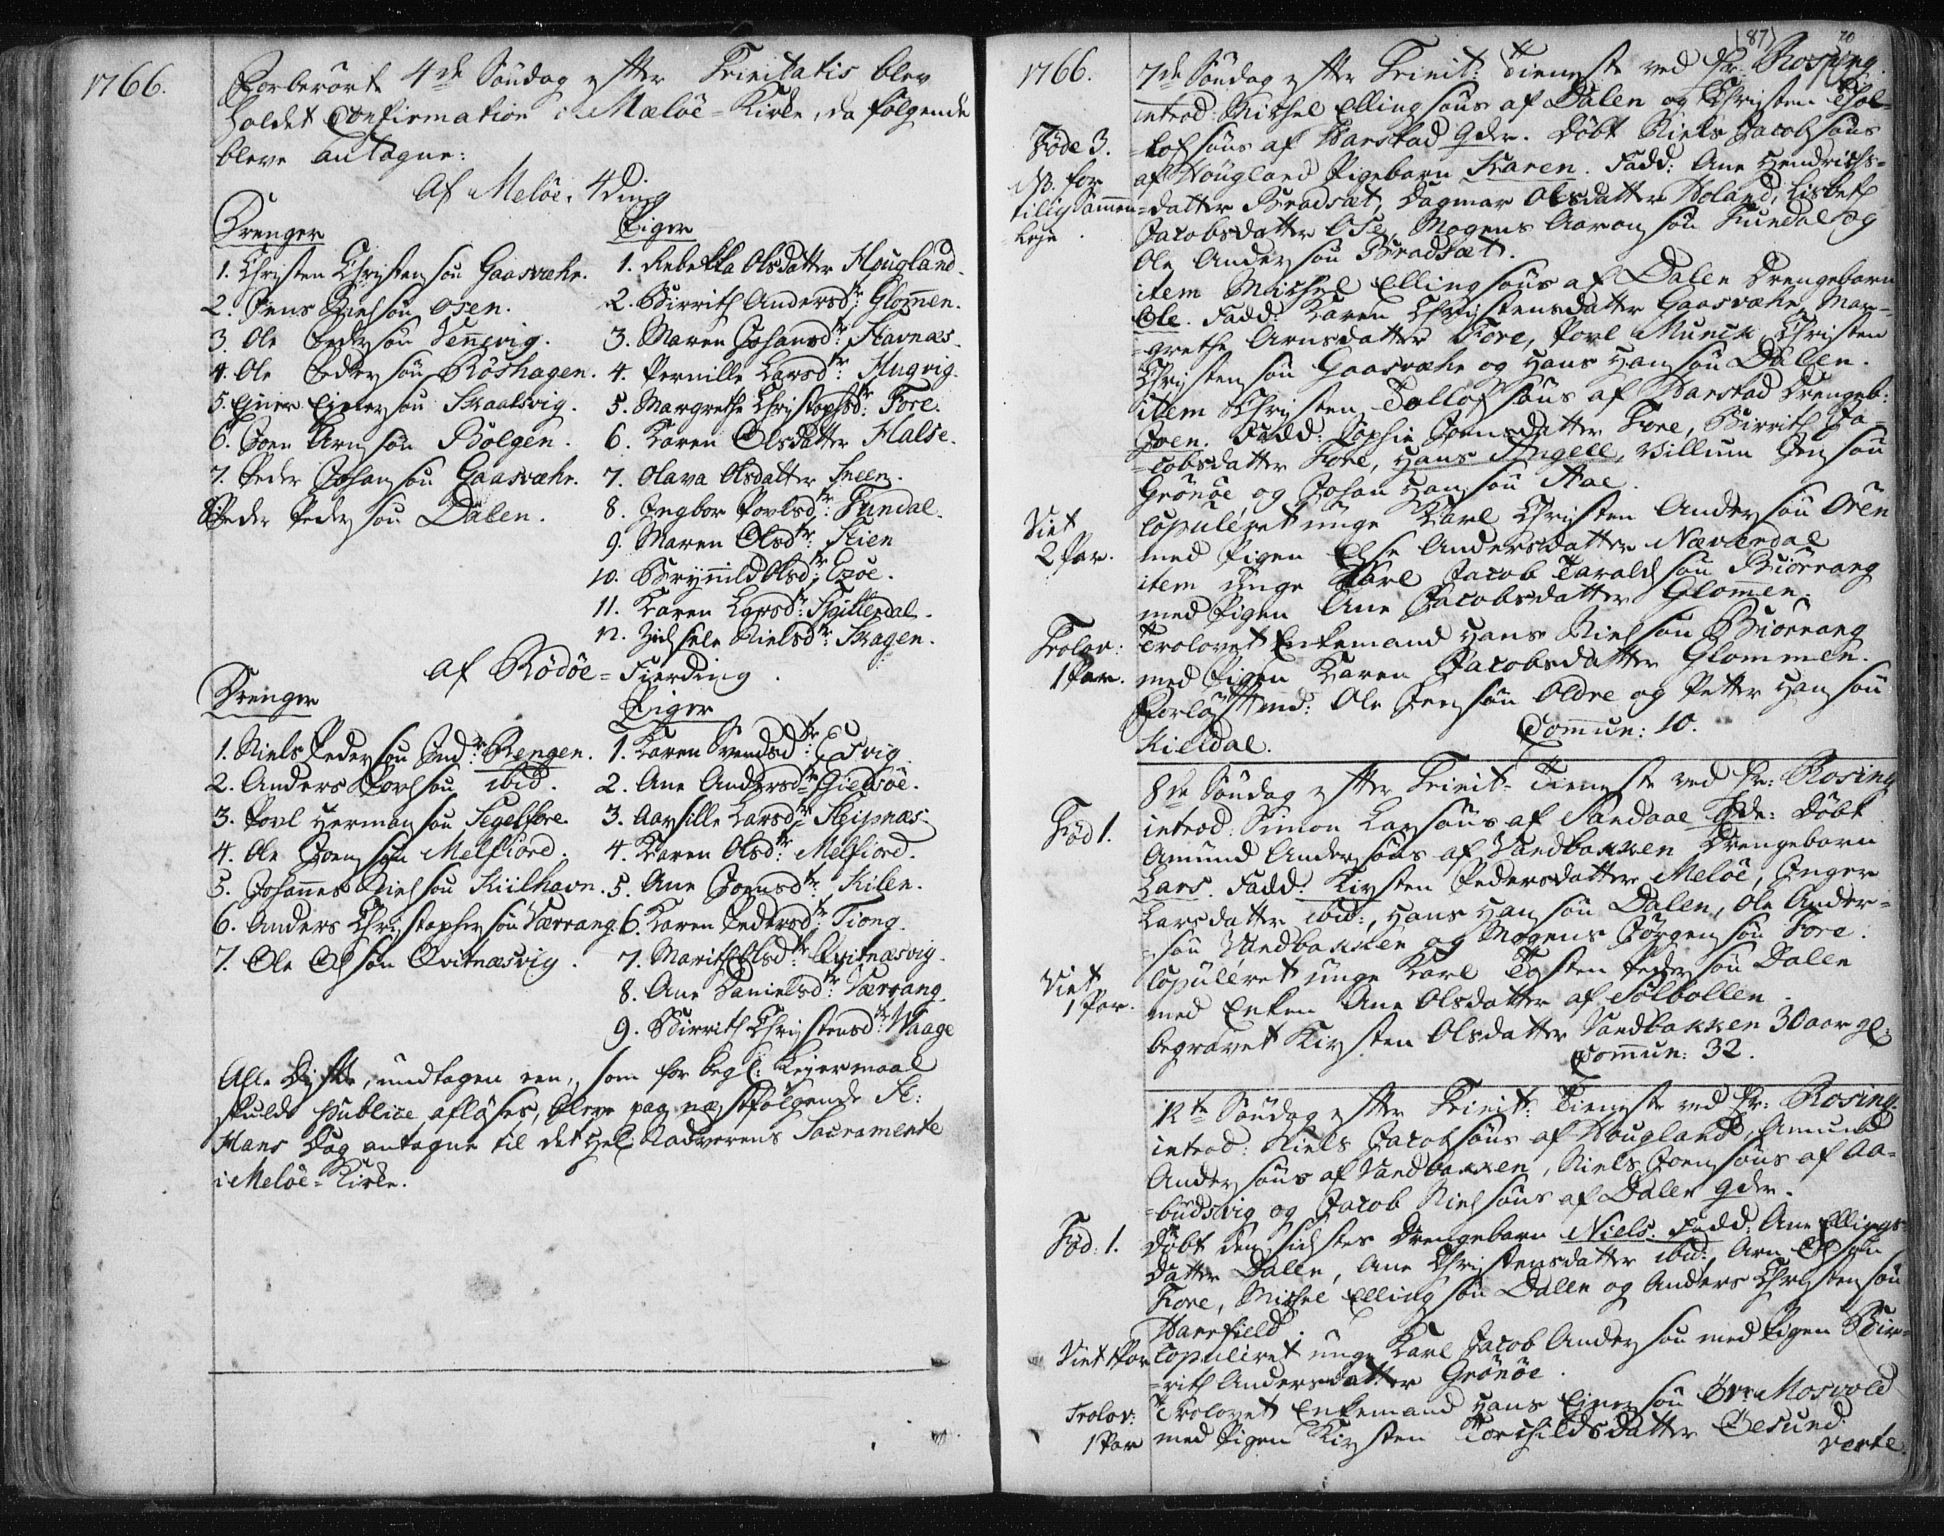 1766.
Forberört 4de Söndag efter Trinitatis blev
holdet Confirmation i Meløe-Kirke, da følgende
bleve antagne:
Af Meløe: 4ding
Drenger
1. Christen Christensøn Gaasvæhr.
2. Jens Nielsøn Osen.
3. Ole Pedersøn Vennevig.
4. Ole Pedersøn Röshagen.
5. Ejner Ejnersøn Skaalsvig.
6. Joen Arnsøn Bolgen.
7. Peder Johansøn Gaasvæhr.
8. Peder Pedersøn Dalen.
Piger
1. Rebekka Olsdatter Hougland.
2. Birrith Andersdtr: Glommen.
3. Maren Johansdtr: Stavnæs.
4. Pernille Larsdtr: Hugvig.
5. Margrethe Christophsdtr: Fore.
6. Karen Olsdatter Halse.
7. Olava Olsdatter Eneen.
8. Ingbor Povlsdtr: Fundal.
9. Maren Olsdtr: Stien
10. Brynnild Olsdtr:
11. Karen Larsdtr:
12. Nielsdtr: Skagen.
Af Rödöe-Fierding.
Drenger
1. Niels Pedersøn Indr: Bengen.
2. Anders Povlsøn ibid.
3. Povl Hermansøn Segelfore.
4. Ole Joensøn Melfiord.
5. Johannes Nielsøn Kiilhavn.
6. Anders Christophersøn Værrang.
7. Ole Olsøn Qvitnæsvig.
Piger
1. Karen Svendsdtr: Esvig.
2. Ane Andersdtr: Gielsøe.
3. Aarsille Larsdtr: Skipnæs.
4. Karen Olsdtr: Melfiord.
5. Ane Joensdtr: Kilen.
6. Karen Pedersdtr: Tiong.
7. Marith Olsdtr: Qvitnæsvig.
8. Ane Danielsdtr: Værrang.
9. Birrith Christensdtr: Waage
Alle Disse, undtagen een, som for begl: Lejermaal
skulde publice afløses, bleve paa næstfølgende St:
Hans Dag antagne til det Hel: Nadverens Sacramente
i Meløe-Kirke.
187
70
1766.
7de Söndag efter Trinit: Tieneste ved Hr: Rosing.
introd: Michel Ellingsøns af Dalen og Christen Thol-
-lofsøns af Harstad qdr. Döbt Niels Jacobsøns
Föde 3.
af Hougland Pigebarn Karen. Fadd: Ane Hendrichs-
NB. for
tillig Sammen-
leje.
-datter Bradsæt, Dagmar Olsdatter Holand, Lisbeth
Jacobsdatter Ose, Mogens Aaronsøn Fundal og
Ole Andersøn Bradsæt.
item Michel Ellingsøns af Dalen Drengebarn
Ole. Fadd: Karen Christensdatter Gaasvæhr, Mar-
-grethe Arnsdatter Fore, Povl Munch, Christen
Christensøn Gaasvæhr og Hans Hansøn Dalen.
item Christen Tollofsøns af Harstad Drengeb:
Joen. Fadd: Sophie Joensdatter Fore, Birrith Ja-
-cobsdatter Fore, Hans Angell, Villum Jensøn
Grönöe, og Johan Hansøn Aae.
Viet
2 Par.
copuleret unge Karl Christen Andersøn Oren
med Pigen Else Andersdatter Næverdal
item unge Karl Jacob Taraldsøn Biörrang
med Pigen Ane Jacobsdatter Glommen.
Trolov:
1 Par.
Trolovet Enkemand Hans Nielsøn Biörrang
med Pigen Karen Jacobsdatter Glommen.
Forløftmd: Ole Jensøn Oldre og Petter Hansøn
Kieldal. Commun: 10.
8de Söndag efter Trinit: Tieneste ved Hr: Rosing
Föd 1.
introd: Simon Larsøns af Sandaae qde: Döbt
Amund Andersøns af Sandbakken Drengebarn
Lars. Fadd: Kirsten Pedersdatter Meløe, Inger
Larsdatter ibid:, Hans Hansøn Dalen, Ole Ander-
-søn Sandbakken og Mogens Jörgensøn Fore.
Viet
1 Par.
Copuleret unge Karl Tosten Pedersøn Dalen
med Enken Ane Olsdatter af Solbollen.
begravet Kirsten Olsdatter Sandbakken 30 aar gl:
Commun: 32.
12te Söndag efter Trinit: Tieneste ved Hr: Rosing.
introd: Niels Jacobsøns af Hougland, Amund
Andersøns af Sandbakken, Niels Joensøns af Aa-
-budsvig og Jacob Nielsøns af Dalen qdr.
Föd: 1.
Döbt den sidstes Drengebarn Niels. Fadd: Ane Ellings-
datter Dalen, Ane Christensdatter ibid:, Arn Olsøn
Fore, Michel Ellingsøn Dalen og Anders Christensøn
Harrefield.
Viet 1 Par
Copuleret unge Karl Jacob Andersøn med Pigen Bir-
-rith Andersdatter Grönöe.
Trolov:
1 Par
Trolovet Enkemand Hans Ejnersøn Övr: Mosvold
med Pigen Kirsten Torchildsdatter Öesund:
verte.